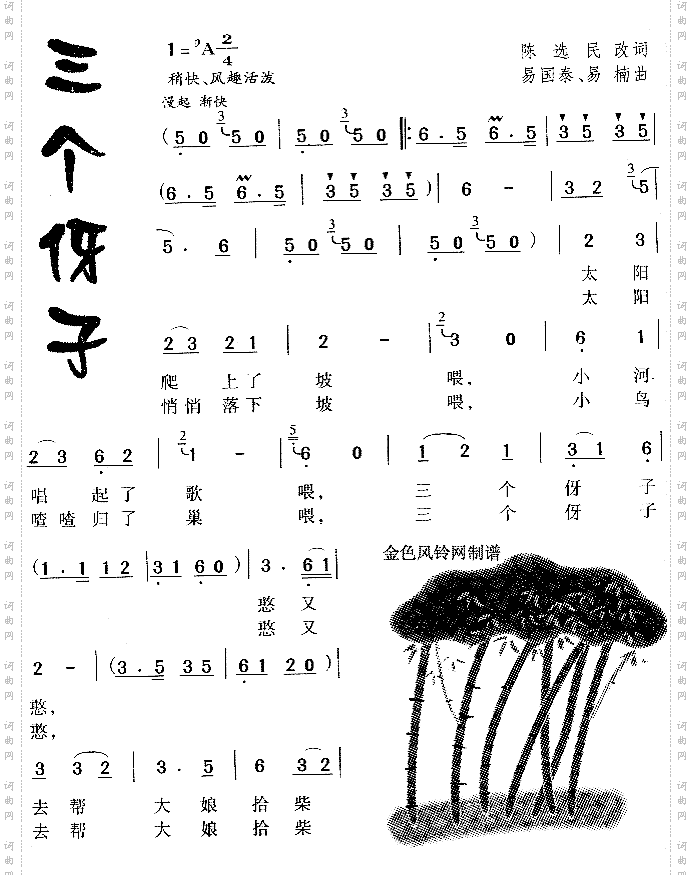 三个伢子
1=♭A 2/4
陈选民 改词
稍快、风趣活泼
易国泰、易楠曲
慢起 渐快
(5 0 5 0 | 5 0 5 0 ‖: 6 . 5 6 . 5 | 3 5 3 5 |
(6 . 5 6 . 5 | 3 5 3 5 ) | 6 - | 3 2 5 |
5 . 6 | 5 0 5 0 | 5 0 5 0 ) | 2 3 |
太 阳
太 阳
2 3 2 1 | 2 - | 3 0 | 6 1 |
爬 上了 坡 喂, 小 河
悄悄 落下 坡 喂, 小 鸟
2 3 6 2 | 1 - | 6 0 | 1 2 1 | 3 1 6 |
唱 起了 歌 喂, 三 个 伢 子
喳喳归了 巢 喂, 三 个 伢 子
(1 . 1 1 2 | 3 1 6 0 ) | 3 . 6 1 |
金色风铃网制谱
憨 又
憨 又
2 - | (3 . 5 3 5 | 6 1 2 0 ) |
憨,
憨,
3 3 2 | 3 . 5 | 6 3 2 |
去 帮 大 娘 拾 柴
去 帮 大 娘 拾 柴